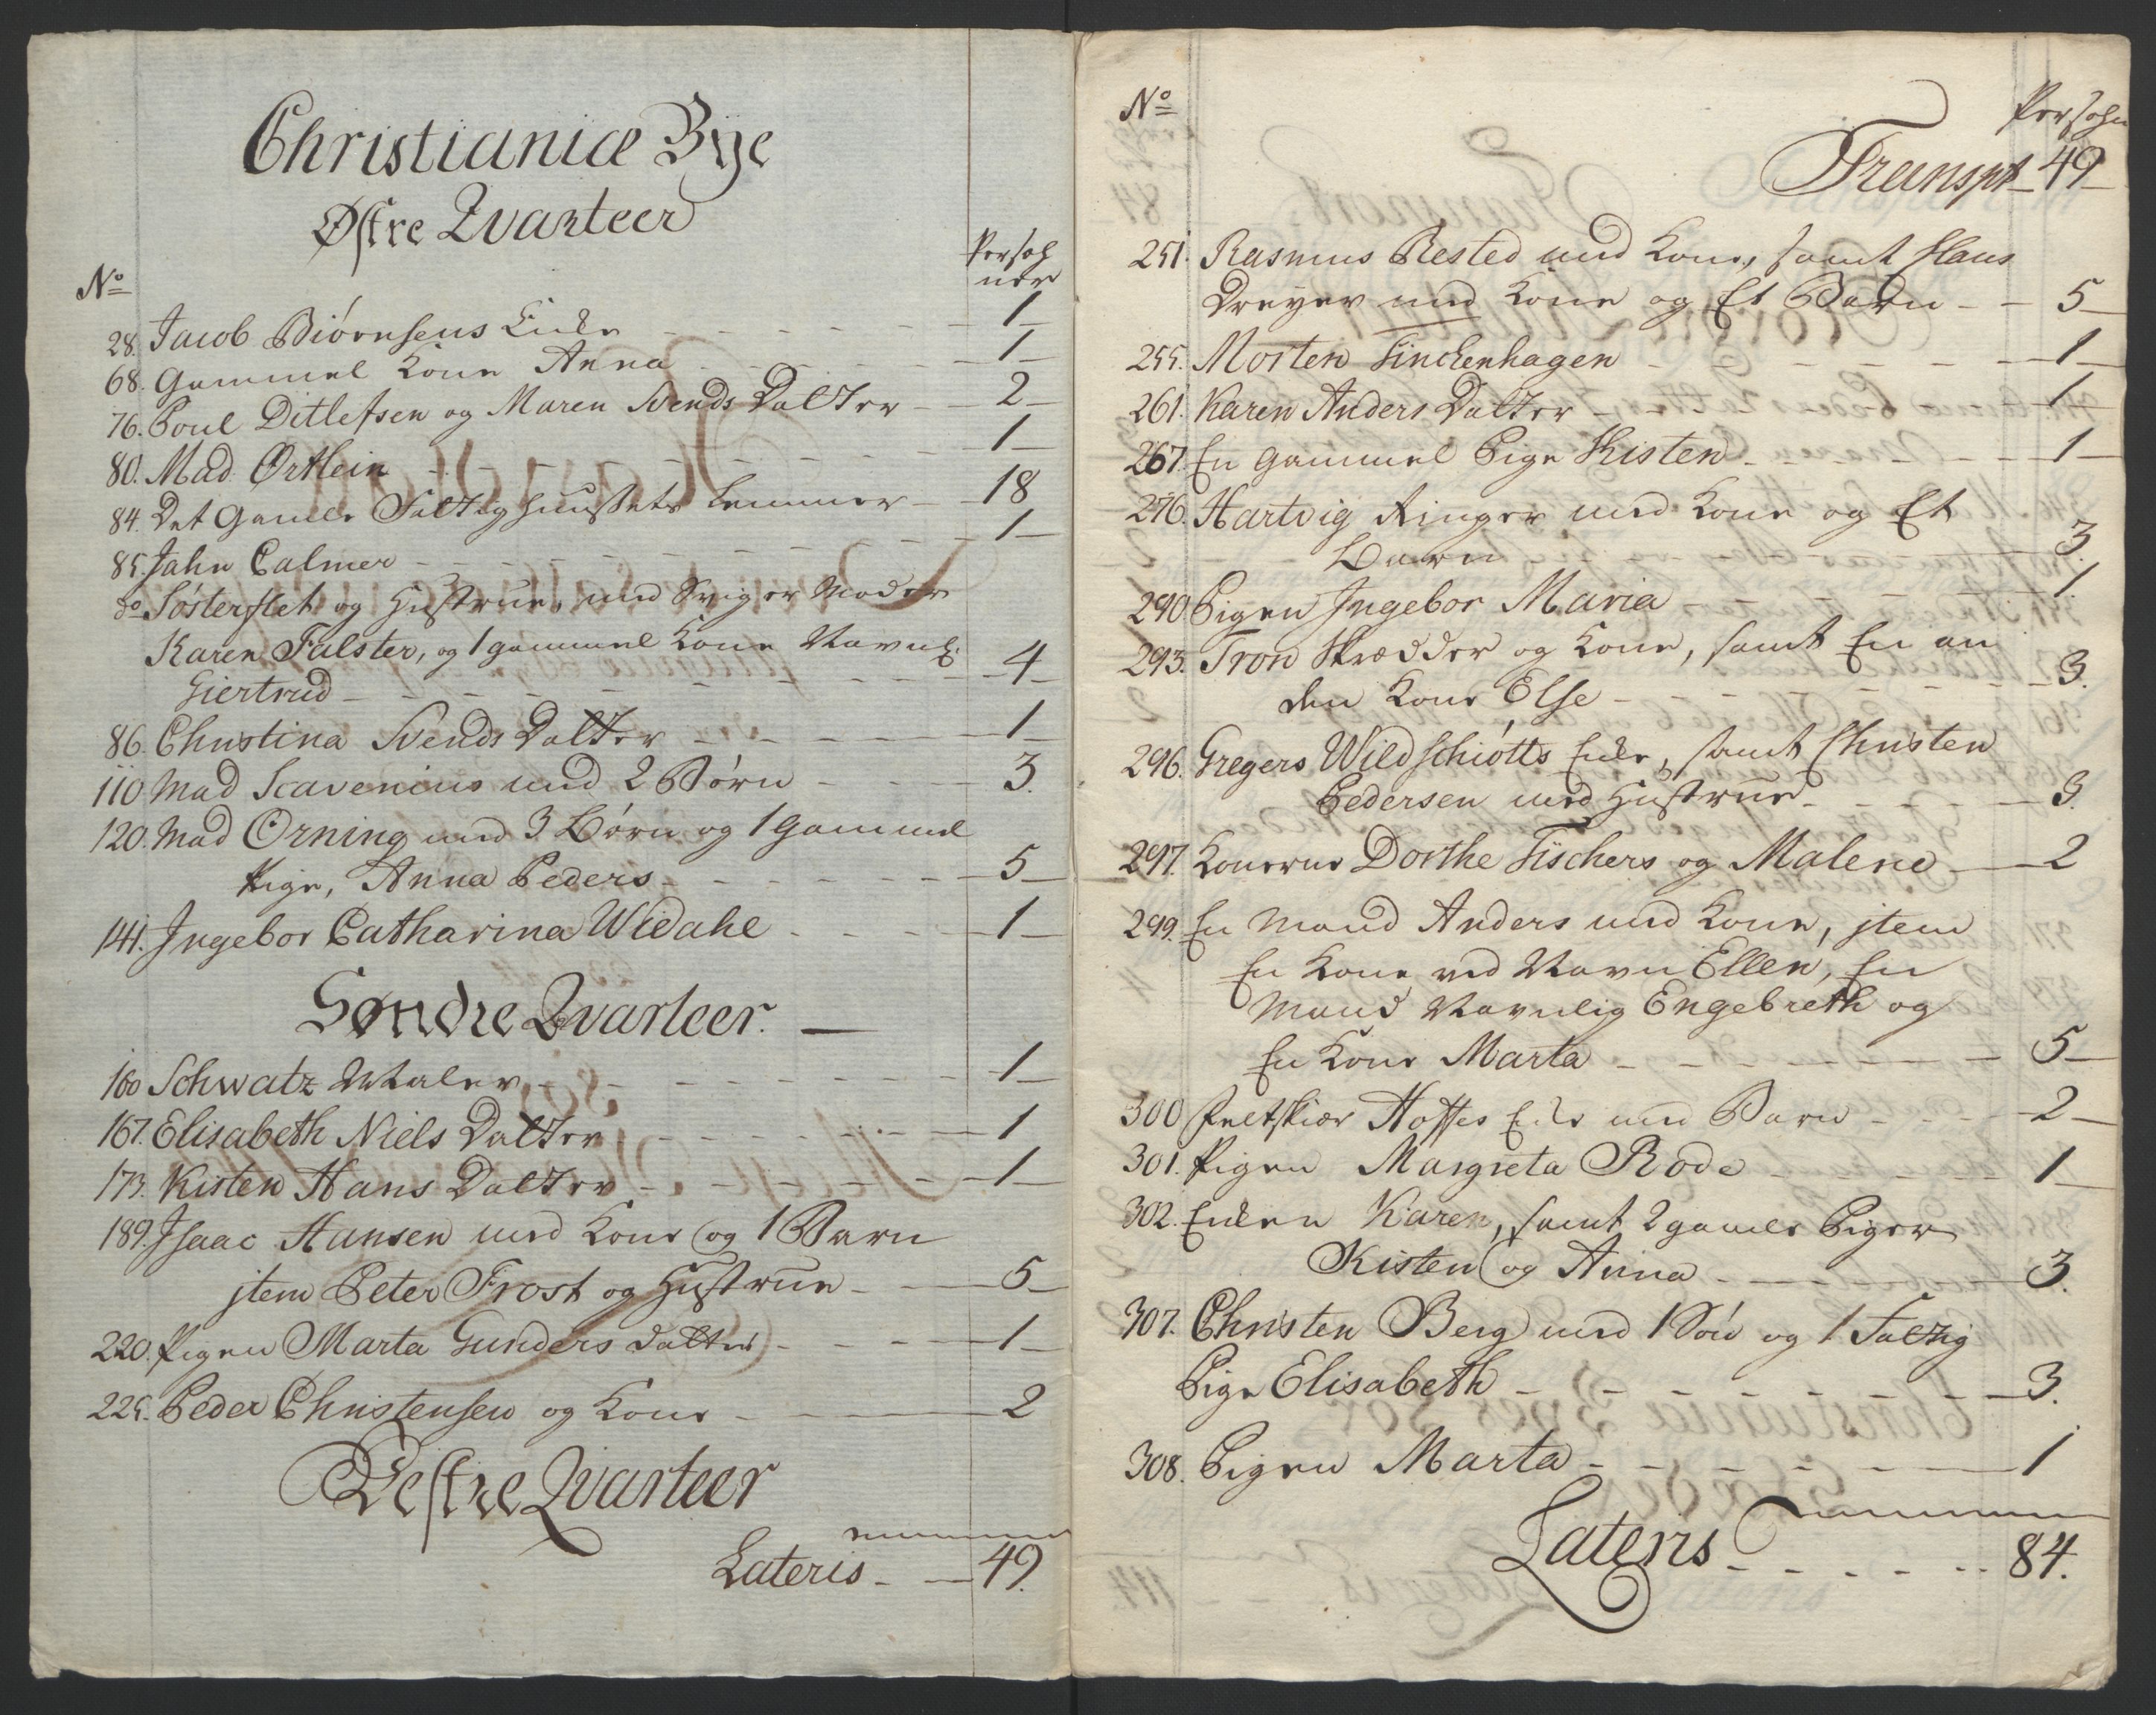 Christianiæ Bÿe
Østre Qvarteer
No
Persoh
ner
28. Jacob Biørnsens Enke - - - - - 1
68. Gammel Kone Anna - - - - - 1
76. Poul Ditlefsen og Maren Svends Datter - 2
80. Mad Ørtlein - - - - - 1
84. Det Gamle Fattighuusets Lemmer - 18
85. Jahn Palmer - - - - - 1
do Sosterflet og Hustrue, med Sviger Moder
Karen Falster, og 1 gammel Kone Navnl:
Giertrud - - - - - 4
86. Christina Svends Datter - - - 1
110 Mad Scavenius med 2 Børn - - - 3.
120. Mad Orning med 3 Børn og 1 Gammel
Pige, Anna Peders - - - - 5
141. Ingebor Catharina Widahl - - - 1
Søndre Qvarteer.
160 Schwatz Maler - - - - 1
167. Elisabeth Niels Datter - - - - 1
173. Kisten Hans Datter - - - - 1
189. Isaac Hansen med Kone og 1 Barn
jtem Peter Frost og Hustrue - - 5
220. Pigen Marta Gunders datter - - - 1
225. Peder Christensen og Kone - - - 2
Vestre Qvarteer
Lateris - - 49.
No
Persohn
Transpt 49
251. Rasmus Rested med Kone, samt Hans
Dreyer med Kone og Et Barn - - 5
255. Morten Finckenhagen - - - - 1
261. Karen Anders Datter - - - - 1
267. En gammel Pige Kisten - - - - 1
276. Hartvig Ringer med Kone og Et
Barn - - - - 3.
290 Pigen Ingebor Maria - - - - 1.
293. Tron Skrædder og Kone, samt En an
den Kone Else - - - - 3.
296. Gregers Wildschiøtts Enke, samt Christen
Pedersen med Hustrue - - - - 3.
297. Konerne Dorthe Fischers og Malene - 2
299. En Mand Anders med Kone, jtem
En Kone ved Navn Ellen, En
Mand Navnlig Engebreth og
En Kone Marta - - - - 5
300 Feltskiær Hoffes Enke med Barn - - - 2
301. Pigen Margreta Rode - - - - 1
302. Enken Karen, samt 2 gamle Piger
Kisten og Anna - - - - 3.
307. Christen Berg med 1 Søn og 1 Fattig
Pige Elisabeth - - - - 3.
308. Pigen Marta - - - - 1
Lateris - - - - 84.